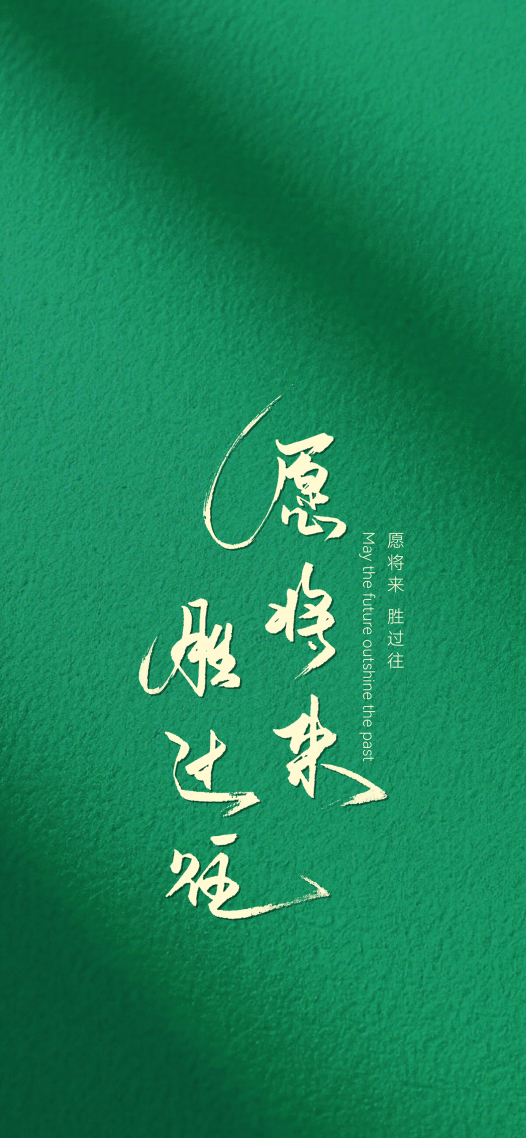 愿将来
胜过往
愿将来 胜过往
May the future outshine the past